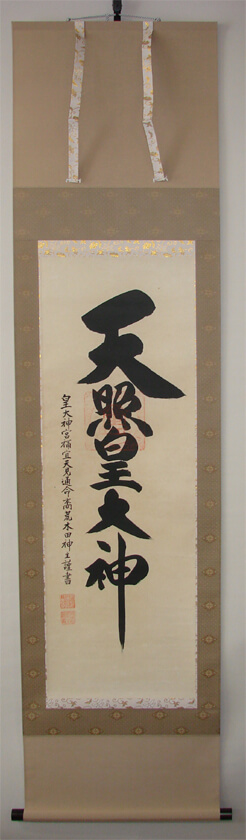 天照皇大神
皇大神宮禰宜天見通命裔荒木田神主謹書